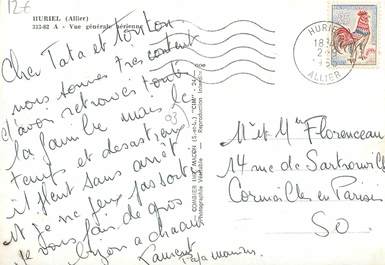 12€
HURIEL (Allier)
323-82 A - Vue générale aérienne
Cher Tata et tonton
nous sommes très content
d'avoir retrouvés toute
la famille mais le
temps est desastreux
il pleut sans arrêt
et je ne peux pas sortir
Je vous fais de gros
bizou a chacun
Laurent
Tata mamie
03
COMBIER IMP. MACON (S.-et-L.) "CIM"
Photographie Véritable - Reproduction Interdite
HURIEL
18H
ALLIER
M. et Mme Florenceau
14 rue de Sartrouville
Cormeilles en Parisis
S O